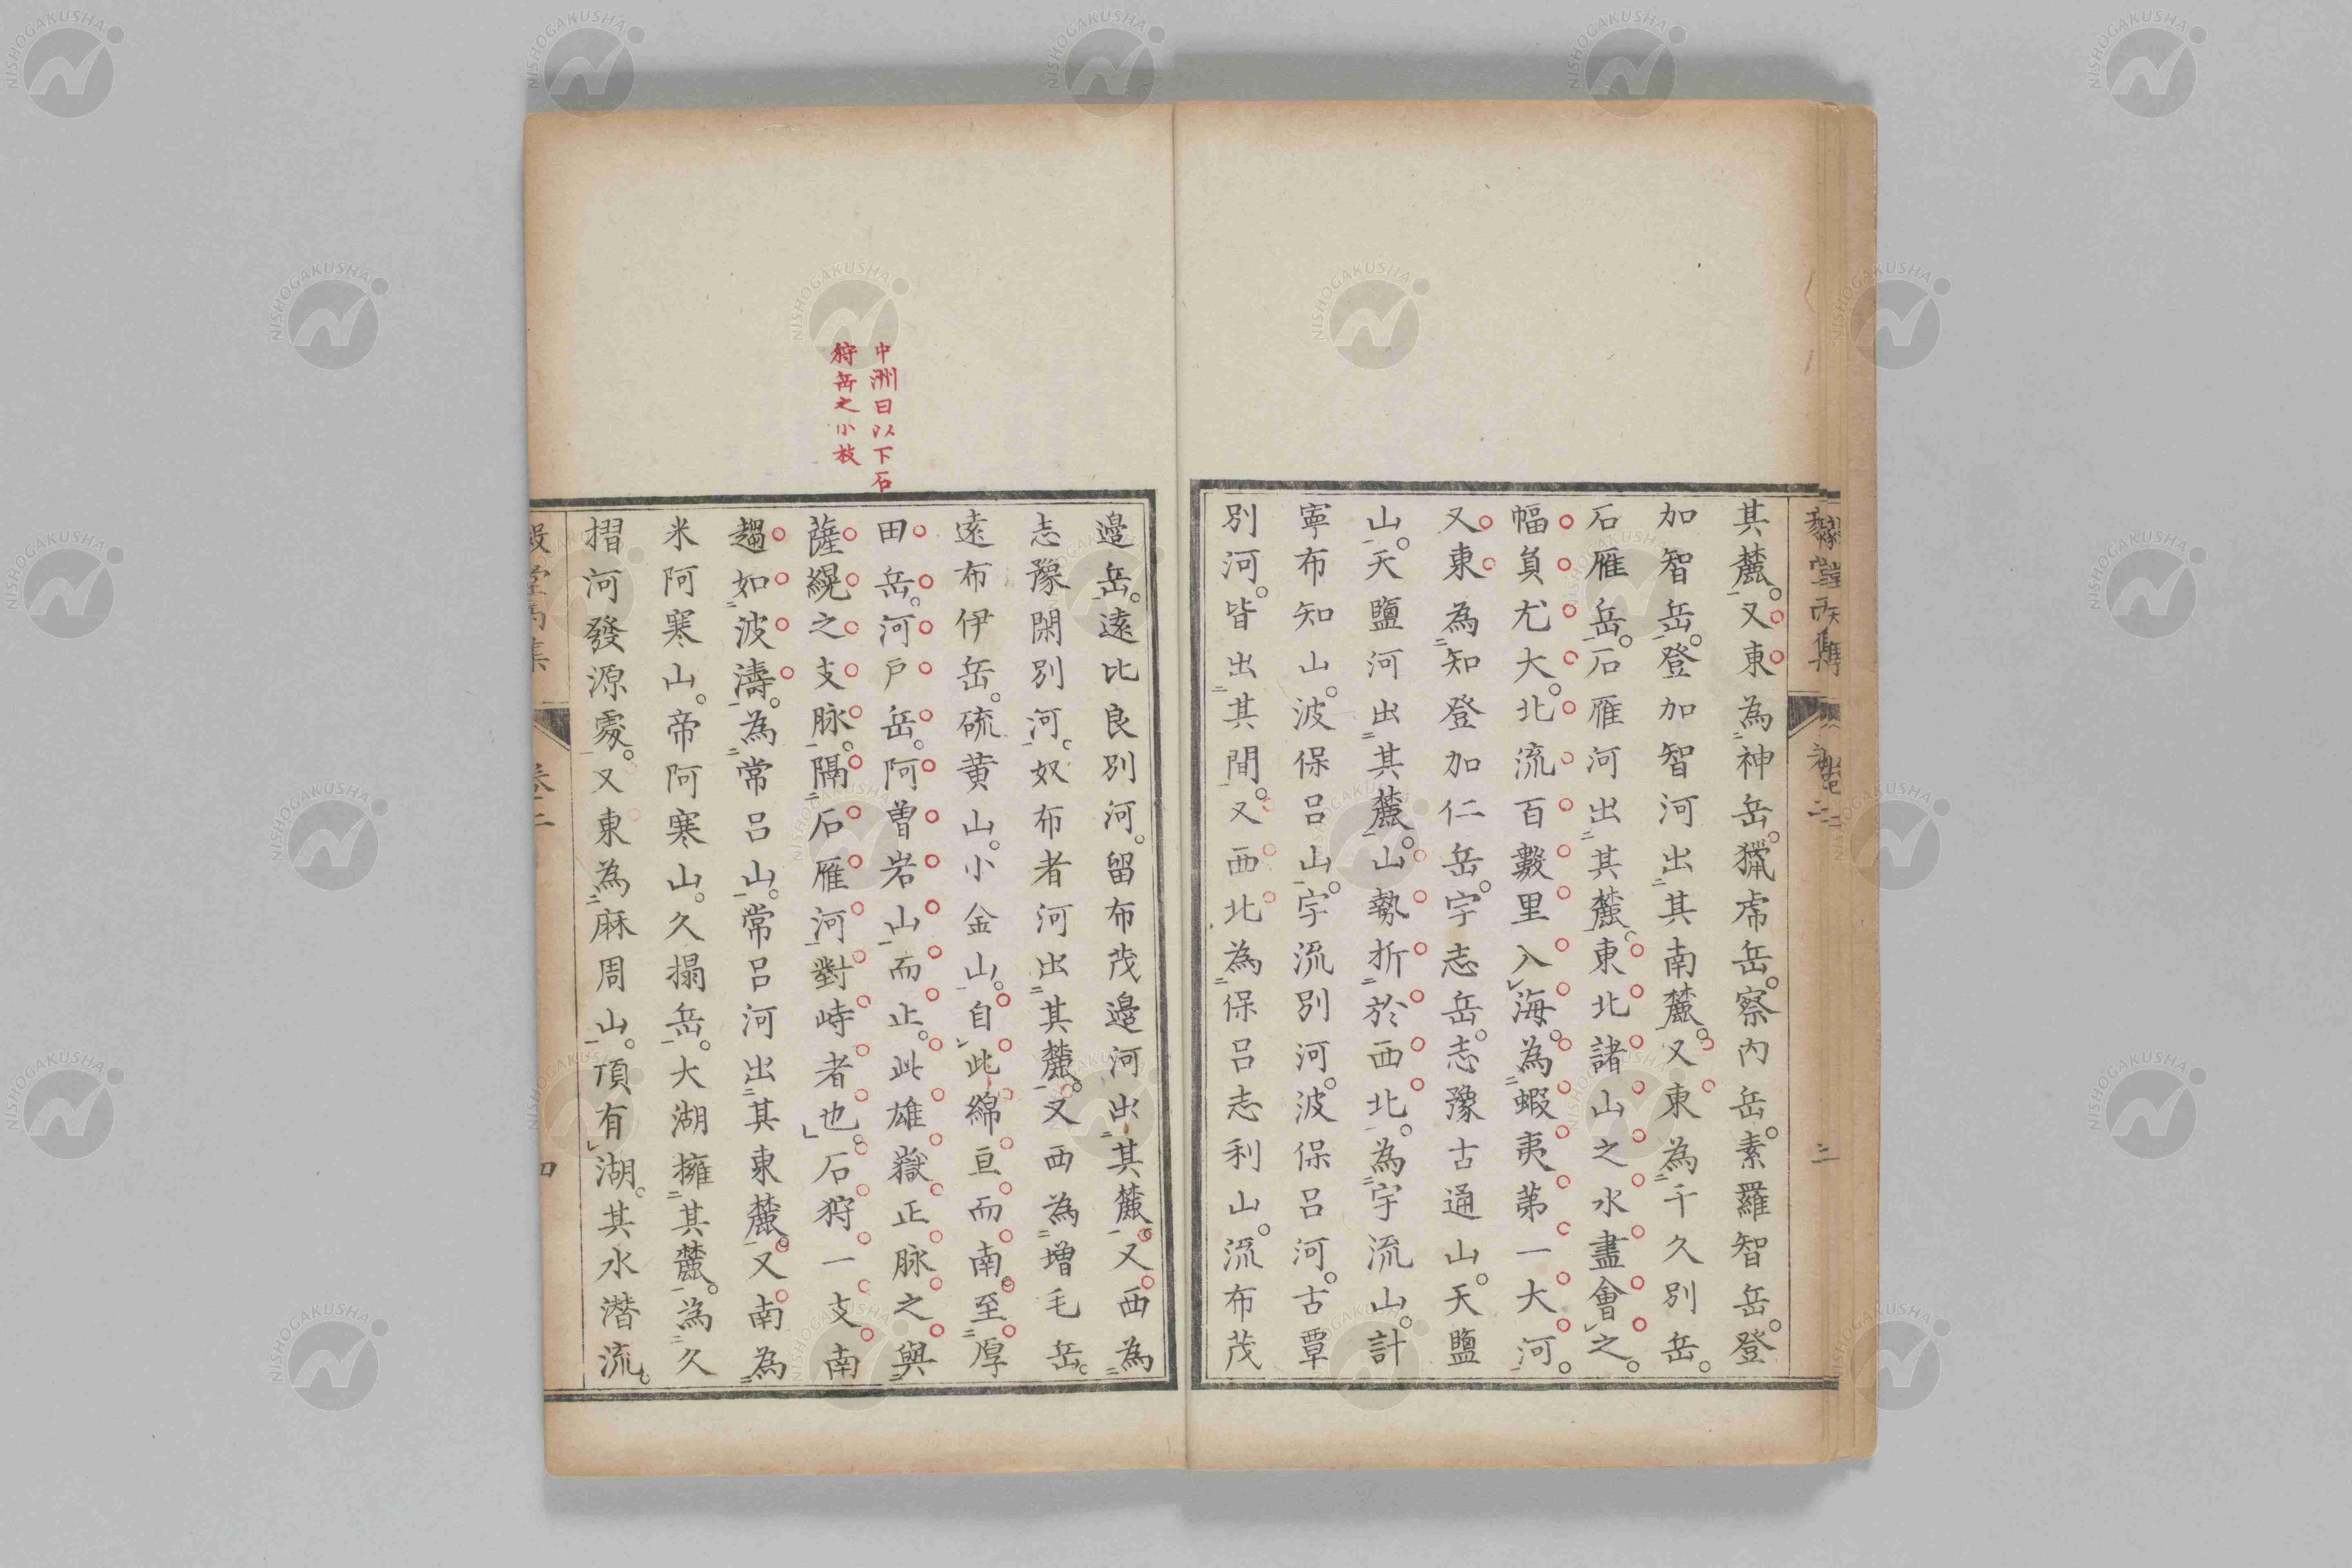 其麓。又東為神岳。獵虎岳。察内岳。素羅智岳。登
加智岳。登加智河出其南麓。又東為千久別岳。
石雁岳。石雁河出其麓。東北諸山之水盡會之。
幅負尤大。北流百數里入海。為蝦夷第一大河。
又東為知登加仁岳。宇志岳。志豫古通山。天鹽
山。天鹽河出其麓。山勢折於西北。為宇流山。計
寧布知山。波保呂山。宇流別河。波保呂河。古覃
別河。皆出其間。又西北為保呂志利山。流布茂
邉岳。遠比良別河。留布茂邉河出其麓。又西為
志豫閑別河。奴布者河出其麓。又西為增毛岳。
遠布伊岳。硫黄山。小金山。自此綿亘而南。至厚
田岳。河戸岳。阿曽岩山而止。此雄嶽正脉之與
薩幌之支脉。隔石雁河對峙者也。石狩一支南
趨如波濤。為常呂山。常呂河出其東麓。又南為
米阿寒山。帝阿寒山。久搨岳。大湖擁其麓。為久
摺河發源處。又東為麻周山。頂有湖。其水潜流。
中洲曰以下石
狩岳之小枝
卷二
三
NISHOGAKUSHA